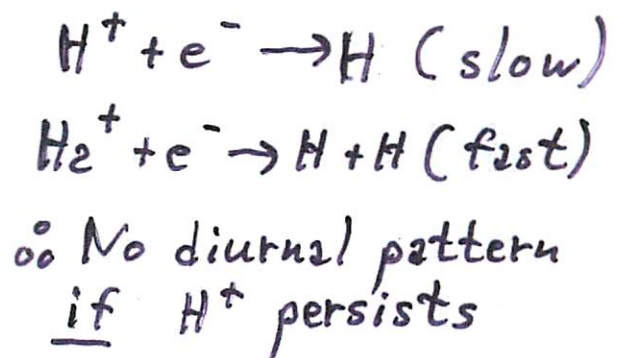 H⁺ + e⁻ → H (slow)
H₂⁺ + e⁻ → H + H (fast)
∴ No diurnal pattern
if H⁺ persists